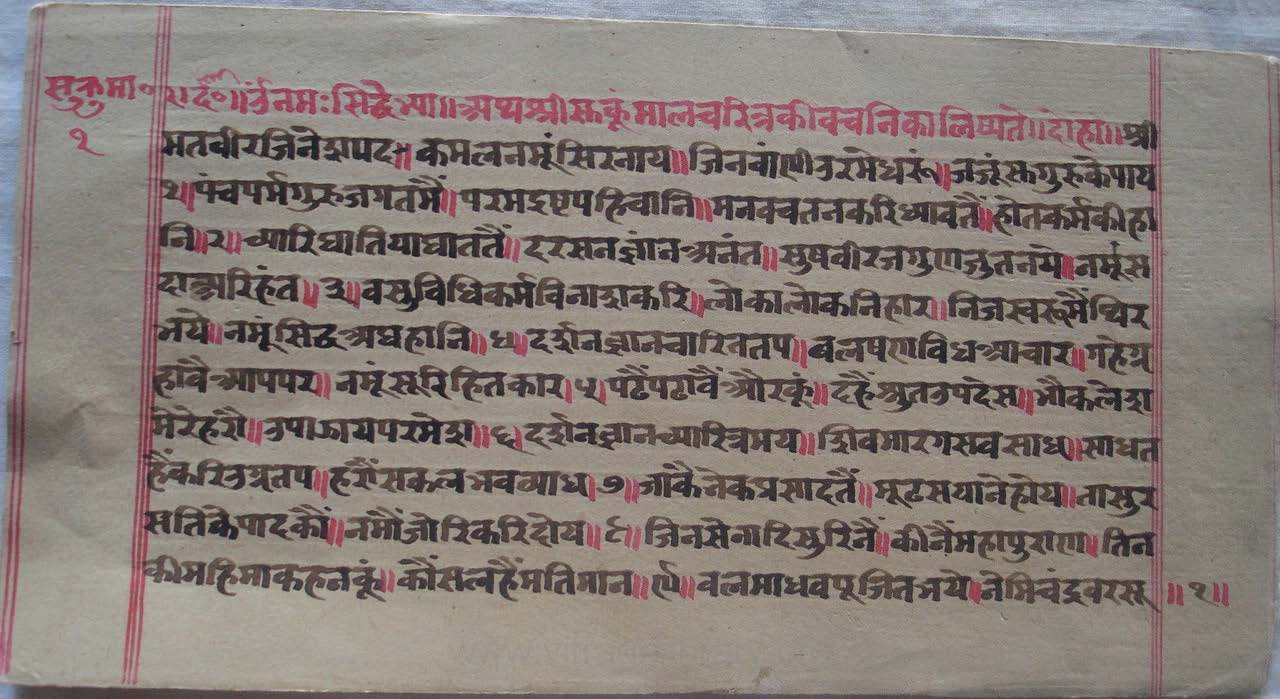 सुकुमा॰ रा दं॰ ॥ र्उनमःसिद्धेभ्या ॥ अथश्रीसुकूंमालचरित्रकीवचनिकालिष्यते ॥ दोहा ॥ श्री
१
मतवीरजिनेशपद ॥ कमलनमूंसिरनाय ॥ जिनवांणीउरमेधरूं ॥ जजूंसुगुरुकेपाय
१ ॥ पंचपर्मगुरुजगतमैं ॥ परमइष्टपहिचांनि ॥ मनवचतनकरिध्यावतैं ॥ होतकर्मकीहा
नि ॥ २ ॥ च्यारिघातियाघाततैं ॥ दरसनज्ञांनअनंत ॥ सुषवीरजगुणजुतनये ॥ नमूंस
दाअरिहंत ॥ ३ ॥ वसुविधिकर्मविनाशकरि ॥ लोकालोकनिहार ॥ निजस्वरूमैंथिर
भये ॥ नमूंसिद्धअघहानि ॥ ४ ॥ दर्शनज्ञानचारिततप ॥ बलपणविधआचार ॥ गहेग्र
हांवैआपपर ॥ नमूंसूरिहितकार ॥ ५ ॥ पढैंपढावैंऔरकूं ॥ दहैंश्रुतउपदेस ॥ भौकलेश
मेरेहरौ ॥ उपाझायपरमेश ॥ ६ ॥ दर्शनज्ञानच्यारित्रमय ॥ शिवमारगसवसाध ॥ साधत
हैंकरिउग्रतप ॥ हरौंसकलभवव्याध ॥ ७ ॥ जांकैनेकप्रसादतैं ॥ मूढसयानेहोय ॥ तासुर
सतिकेपादकौं ॥ नमौंजोरिकरिदोय ॥ ८ ॥ जिनसेनादिसुरिनैं ॥ कीनैंमहापुराण ॥ तिन
कीमहिमाकहनकूं ॥ कौंसलहैंमतिमान ॥ ९ ॥ वलमाधवपूजितभये ॥ नेमिचंद्रवरसू ॥ १ ॥